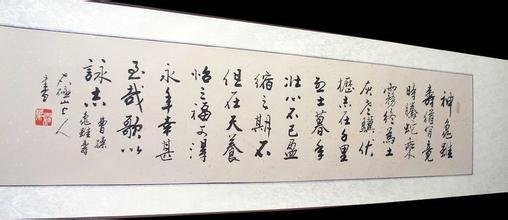 神龜雖
壽猶有竟
時騰蛇乘
霧終為土
灰老驥伏
櫪志在千里
烈士暮年
壯心不已盈
縮之期不
但在天養
怡之福可得
永年幸甚
至哉歌以
詠志
曹操
龜雖壽
山上人
書